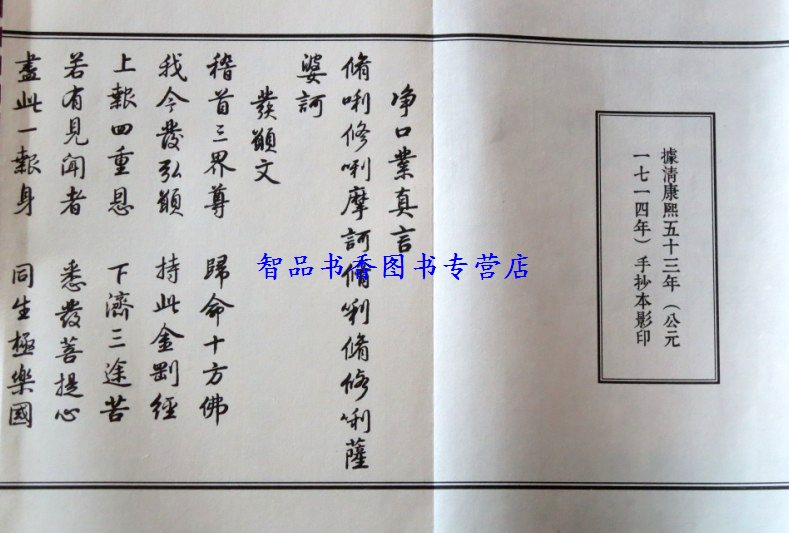 據清康熙五十三年（公元
一七一四年）手抄本影印
净口業真言
脩唎修唎摩訶脩唎脩修唎薩
婆訶
發願文
稽首三界尊 歸命十方佛
我今發弘願 持此金剛經
上報四重恩 下濟三途苦
若有見聞者 悉發菩提心
盡此一報身 同生極樂國
智品书香图书专营店